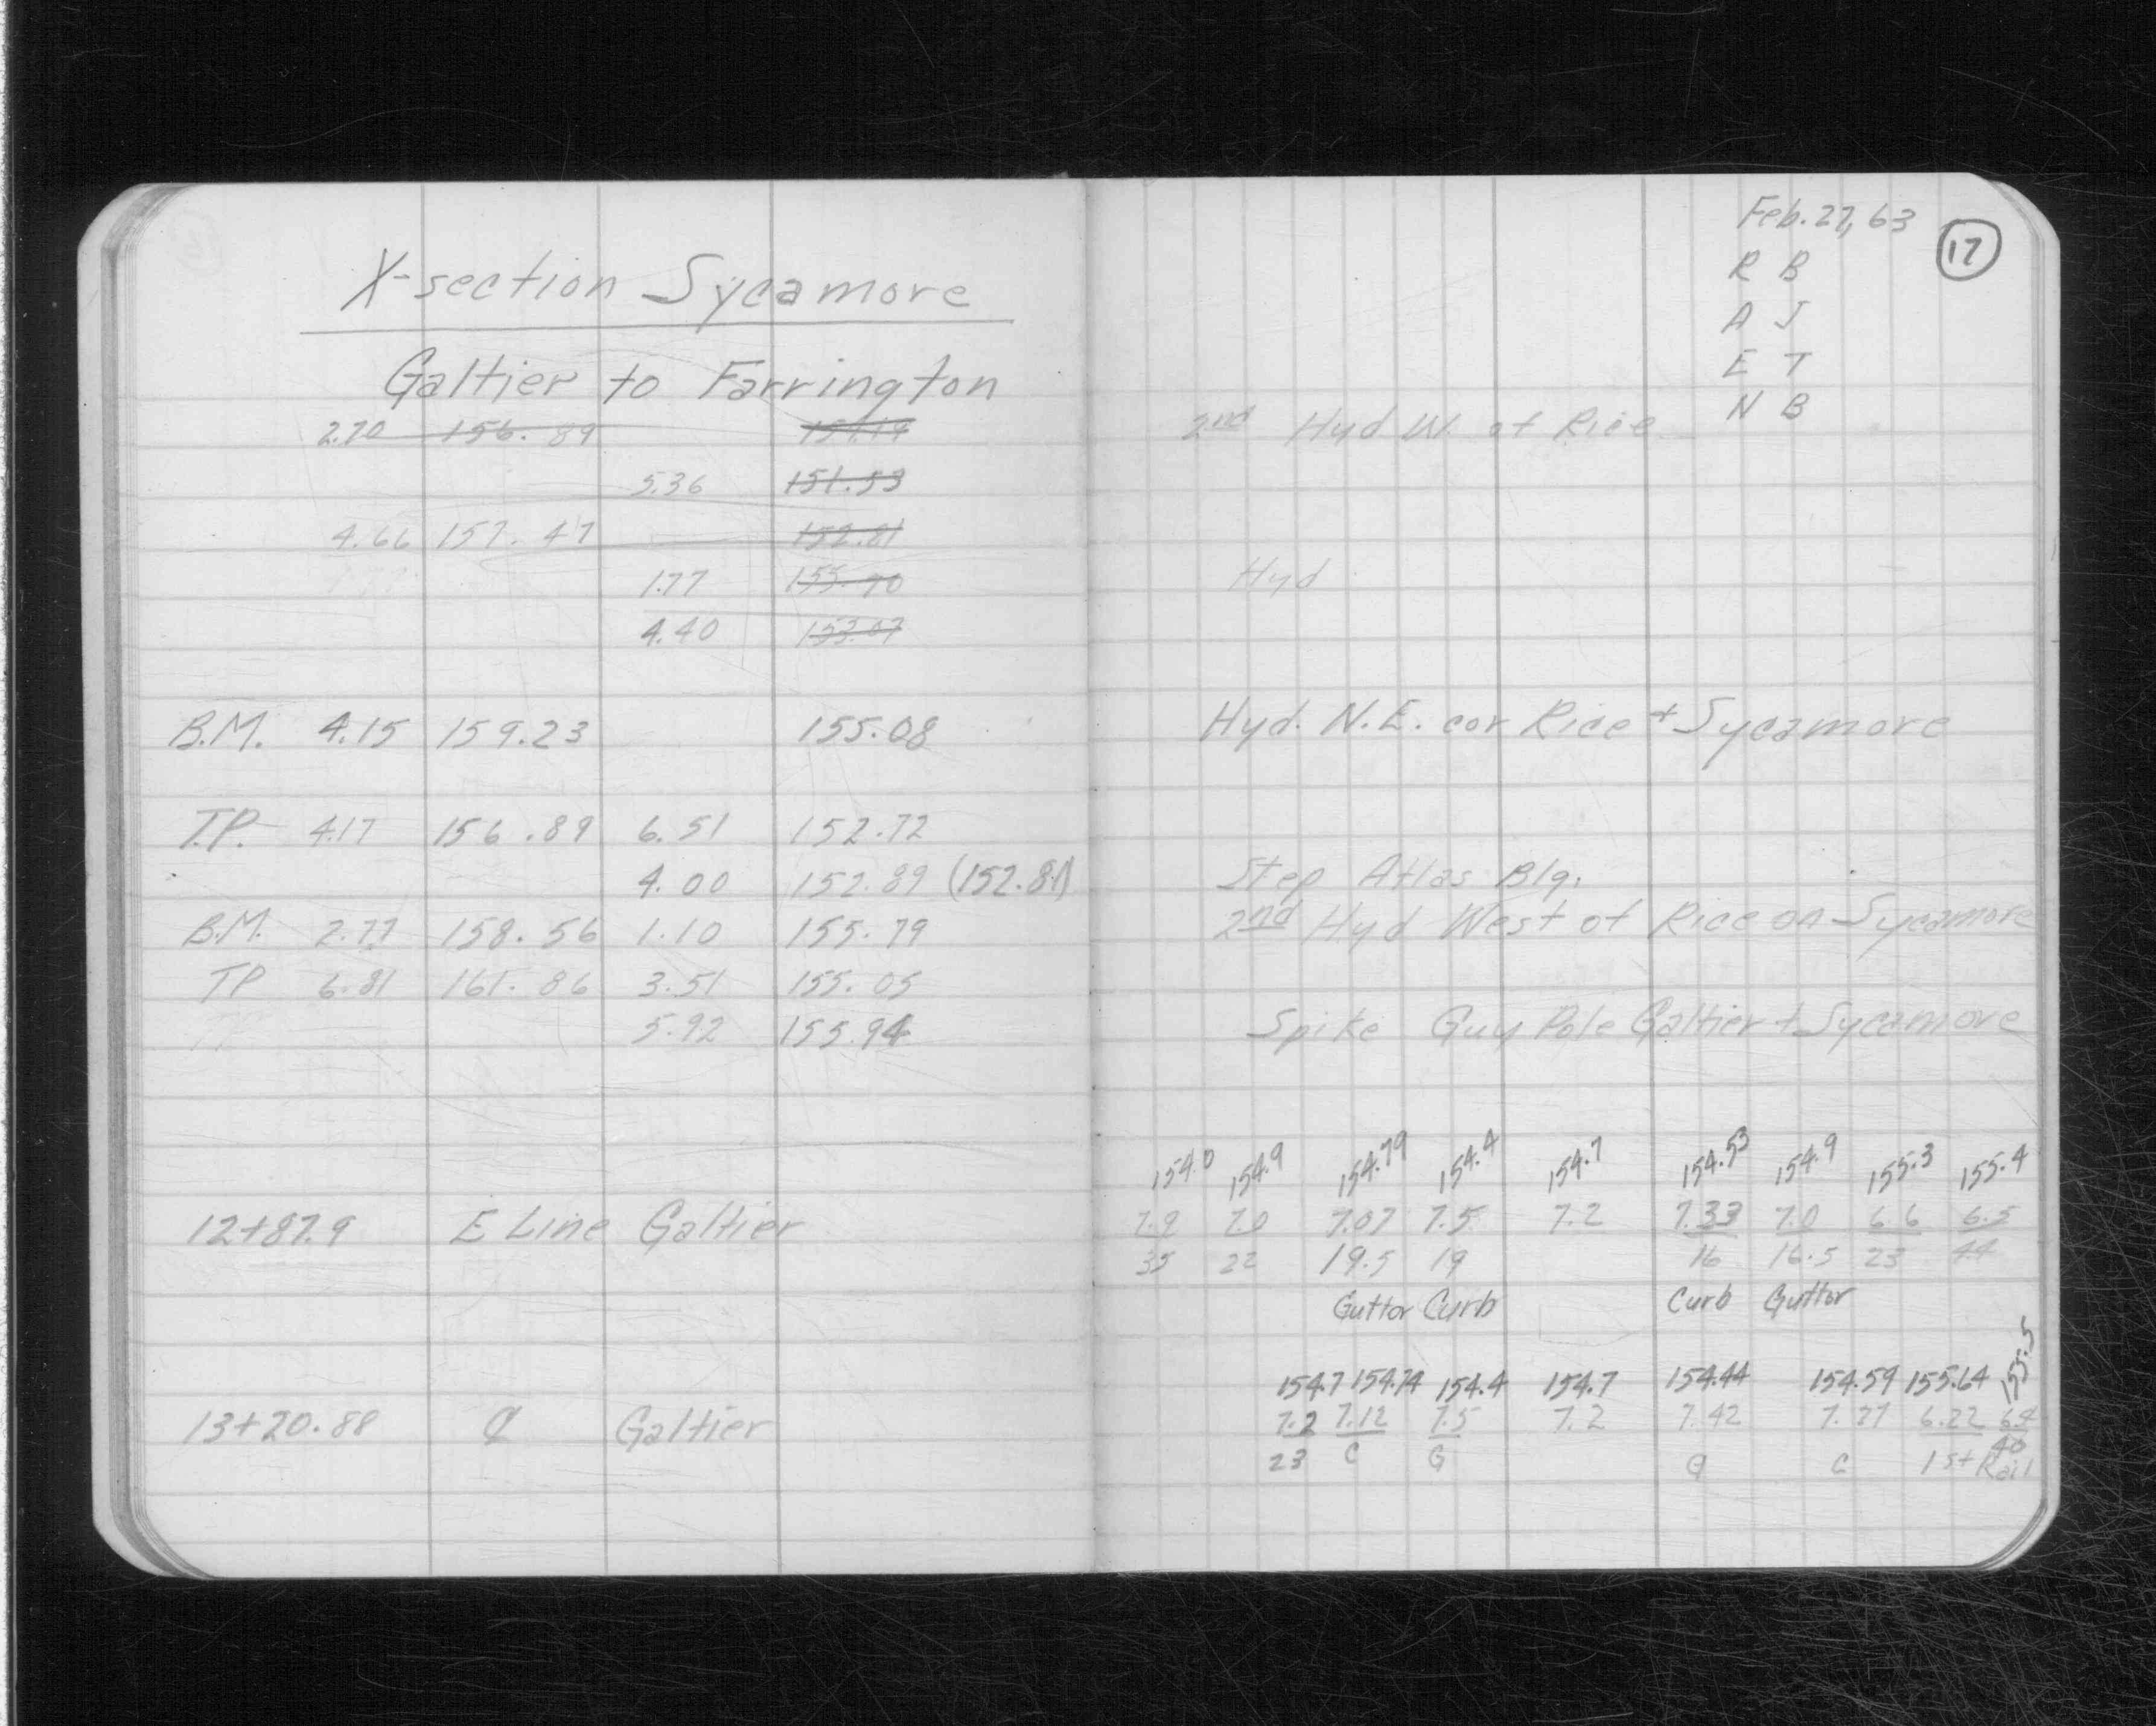 X-section Sycamore
Galtier to Farrington
2.70 156.89 154.19
5.36 151.53
4.66 157.47 152.81
1.77 155.70
4.40 153.07
B.M. 4.15 159.23 155.08
T.P. 4.17 156.89 6.51 152.72
4.00 152.89 (152.81)
B.M. 2.77 158.56 1.10 155.79
TP 6.81 161.86 3.51 155.05
TP 5.92 155.94
12+87.9 E Line Galtier
13+20.88 ℄ Galtier
Feb. 27, 63
17
R B
A J
E T
N B
2nd Hyd W. of Rice
Hyd
Hyd. N.E. cor Rice + Sycamore
Step Atlas Blg.
2nd Hyd West of Rice on Sycamore
Spike Guy Pole Galtier + Sycamore
154.0 154.9 154.79 154.4 154.7 154.53 154.9 155.3 155.4
7.9 7.0 7.07 7.5 7.2 7.33 7.0 6.6 6.5
35 22 19.5 19 16 16.5 23 44
Gutter Curb Curb Gutter
154.7 154.74 154.4 154.7 154.44 154.59 155.64 155.5
7.2 7.12 7.5 7.2 7.42 7.27 6.22 6.4
23 C G G C 1st Rail 40